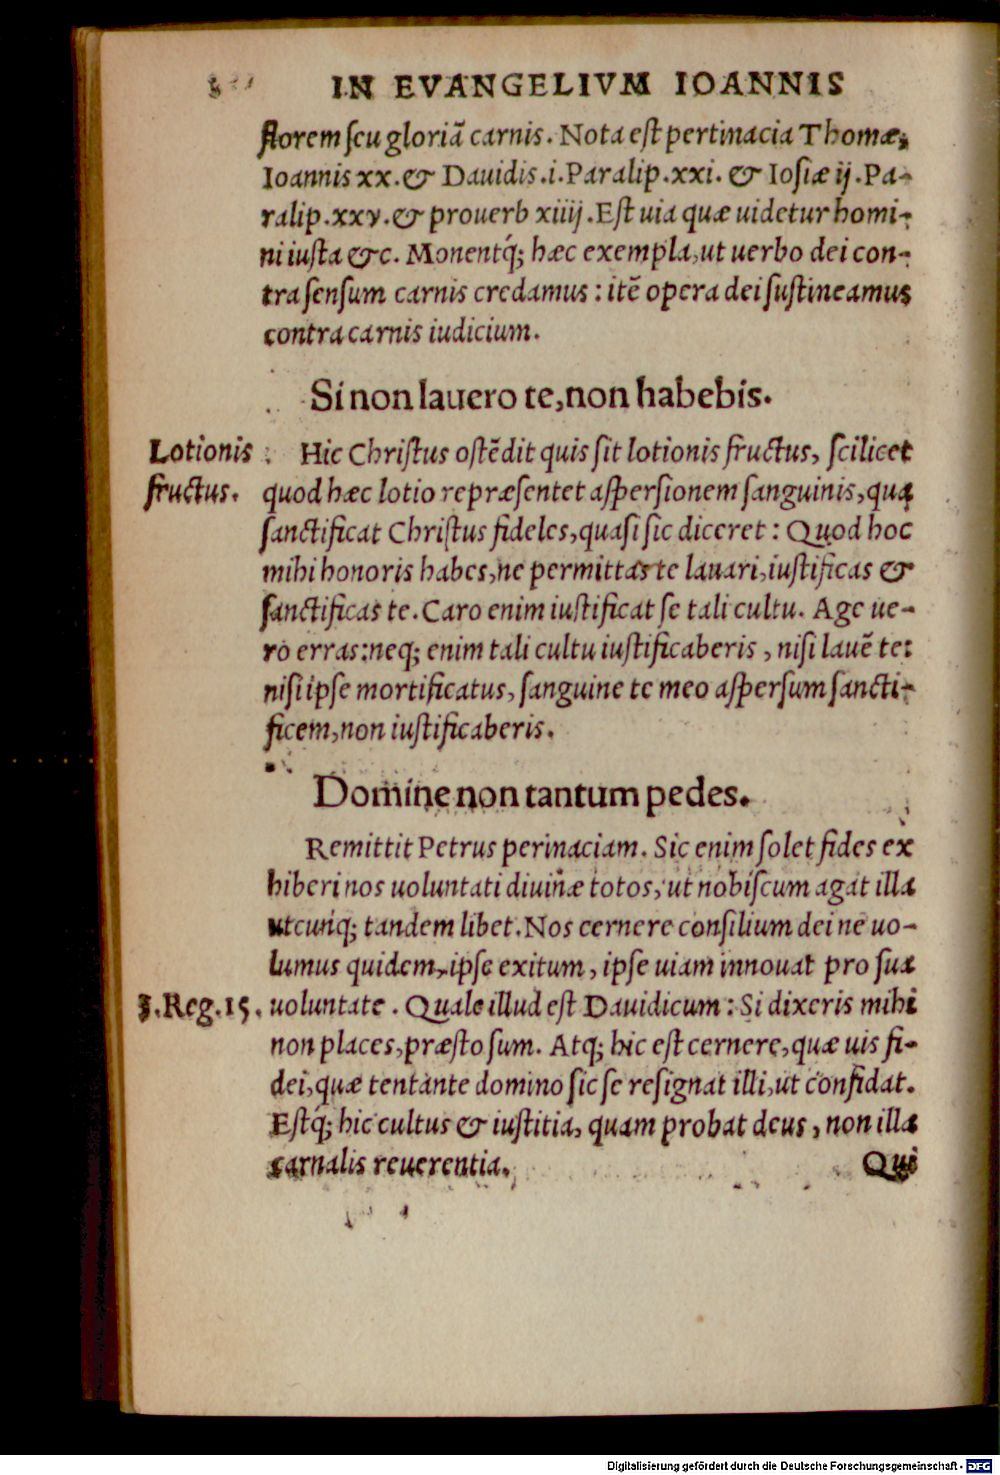 IN EVANGELIVM IOANNIS
florem ſeu gloriã carnis. Nota eſt pertinacia Thomæ,
Ioannis xx. & Dauidis .i. Paralip. xxi. & Ioſiæ ij. Pa-
ralip. xxv. & prouerb xiiij. Eſt uia quæ uidetur homi-
ni iuſta &c. Monentq́; hæc exempla, ut uerbo dei con-
tra ſenſum carnis credamus: itẽ opera dei ſuſtineamus
contra carnis iudicium.
Si non lauero te, non habebis.
Lotionis
fructus.
Hic Chriſtus oſtẽdit quis ſit lotionis fructus, ſcilicet
quod hæc lotio repræſentet aſperſionem ſanguinis, qua
ſanctificat Chriſtus fideles, quaſi ſic diceret: Quod hoc
mihi honoris habes, ne permittas te lauari, iuſtificas &
ſanctificas te. Caro enim iuſtificat ſe tali cultu. Age ue-
ro erras: neq; enim tali cultu iuſtificaberis, niſi lauẽ te:
niſi ipſe mortificatus, ſanguine te meo aſperſum ſancti-
ficem, non iuſtificaberis.
Domine non tantum pedes.
Remittit Petrus perinaciam. Sic enim ſolet fides ex
hiberi nos uoluntati diuinæ totos, ut nobiſcum agat illa
utcunq; tandem libet. Nos cernere conſilium dei ne uo-
lumus quidem, ipſe exitum, ipſe uiam innouat pro ſua
uoluntate. Quale illud eſt Dauidicum: Si dixeris mihi
J. Reg. 15.
non places, præſto ſum. Atq; hic eſt cernere, quæ uis fi-
dei, quæ tentante domino ſic ſe reſignat illi, ut confidat.
Eſtq́; hic cultus & iuſtitia, quam probat deus, non illa
carnalis reuerentia.
Qui
Digitalisierung gefördert durch die Deutsche Forschungsgemeinschaft - DFG